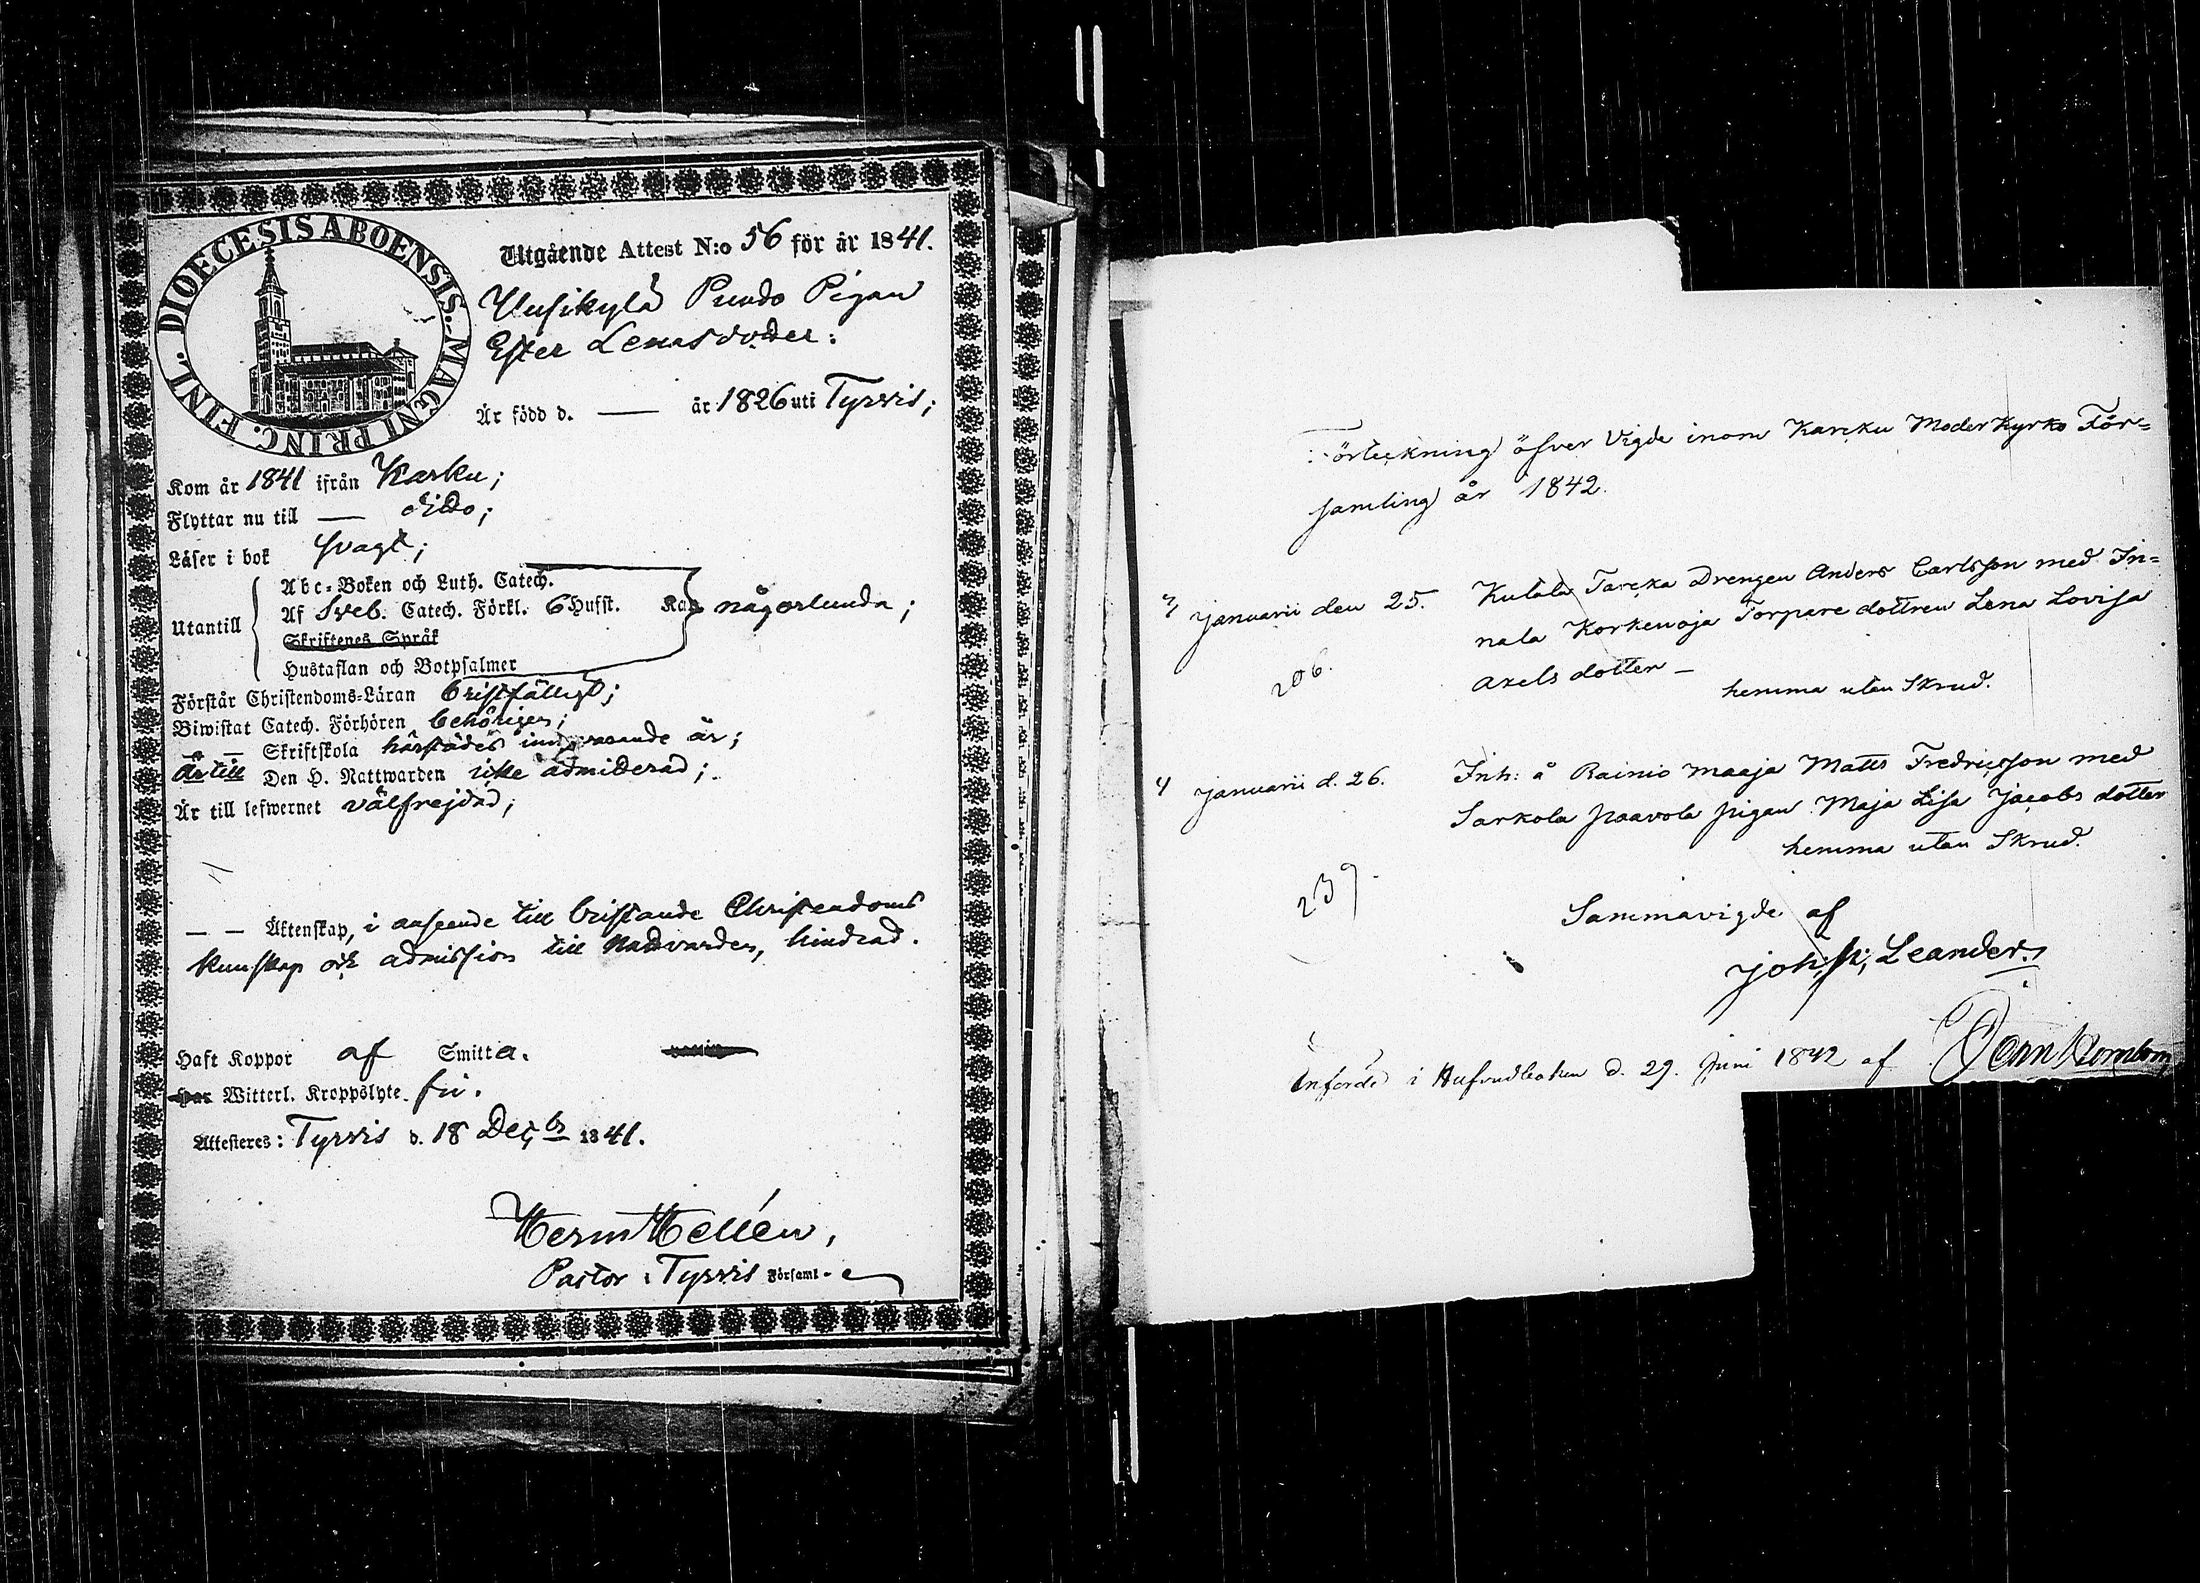 DIOECESIS ABOENSIS. MAGNI PRINC. FINL.
Utgående Attest N:o 56 för år 1841.
Uusikylä Pundo Pigan
Ester Lenasdotter:
Är född d. — år 1826 uti Tyrvis;
Kom år 1841 ifrån Karku;
Flyttar nu till — dito;
Läser i bok svagt;
Utantill
Abc-Boken och Luth. Catech.
Af Sveb. Catech. Förkl. 6 Hufst. Kan någorlunda;
Skriftenes Språk
Hustaflan och Botpsalmer
Förstår Christendoms-Läran bristfälligt;
Biwistat Catech. Förhören behörigen;
— — Skriftskola härstädes innevarande år;
Är till Den H. Nattwarden icke admitterad;
Är till lefwernet välfrejdad;
— — Äktenskap, i anseende till bristande Christendoms
kunskap och admission till Nattvarden, hindrad.
Haft Koppor af Smitta.
Har Witterl. Kroppslyte fri.
Attesteres: Tyrvis d. 18 Dec:br 1841.
Herm Hellén,
Pastor i Tyrvis Församl.
Förteckning öfver Vigde inom Karku Moderkyrko För=
samling år 1842.
3 Januarii den 25. Kutala Tarcka Drengen Anders Carlsson med In=
nala Korkenoja Torpare dottren Lena Lovisa
Axels dotter —
206.
hemma utan Skrud.
4 Januarii d. 26. Inh: å Rainio Maaja Matts Fredricsson med
Sarkola Paavola pigan Maja Lisa Jacobs dotter
hemma utan Skrud.
239.
Sammavigde af
Joh: Leander.
Införde i Hufvudboken d. 29. Juni 1842 af